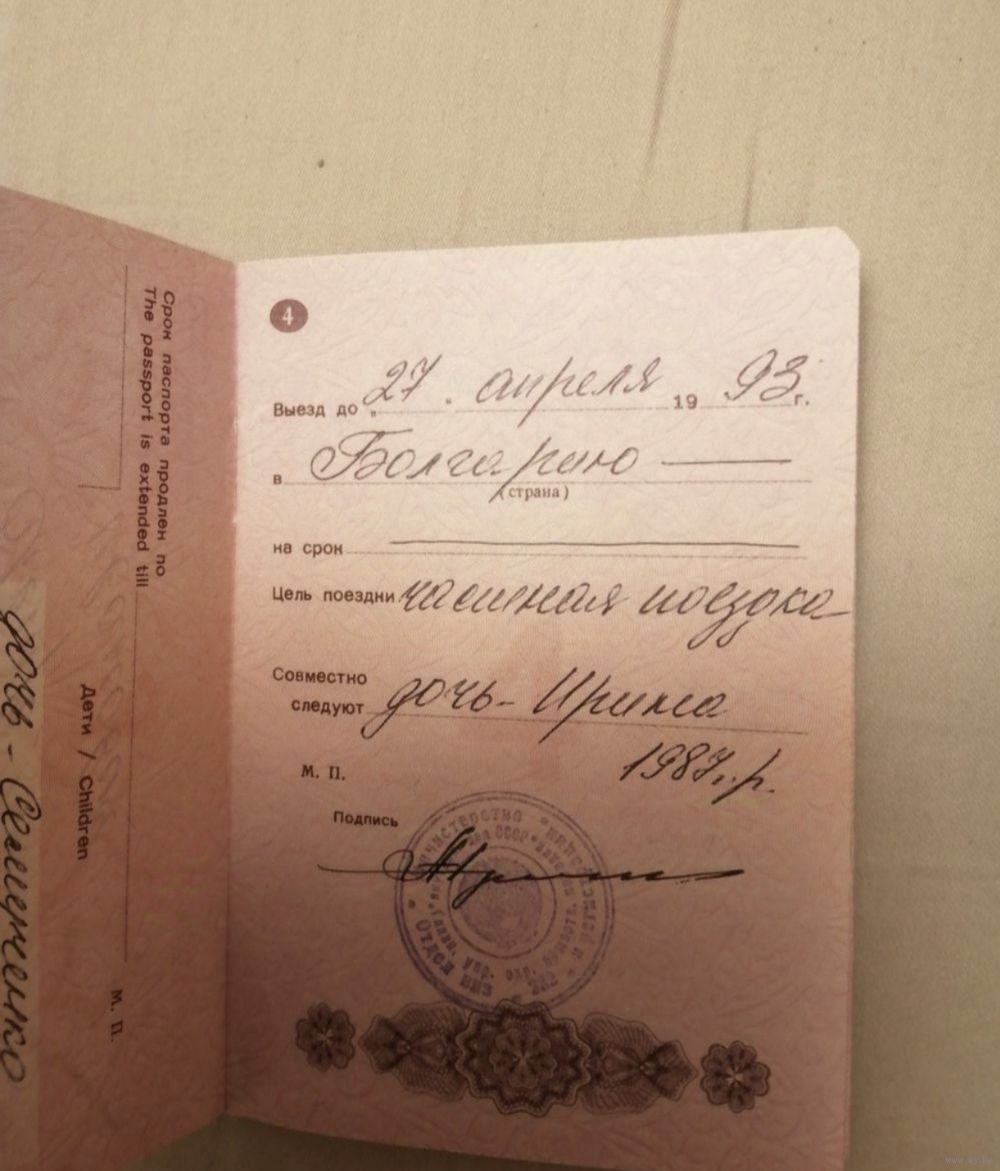 Срок паспорта продлен по
The passport is extended till
Дети / Children
дочь - 
М. П.
4
Выезд до „27“ апреля 1993 г.
в Болгарию
(страна)
на срок
Цель поездки частная поездка
Совместно
следуют дочь - Ирина
1987 г.р.
М. П.
Подпись
Отдел виз